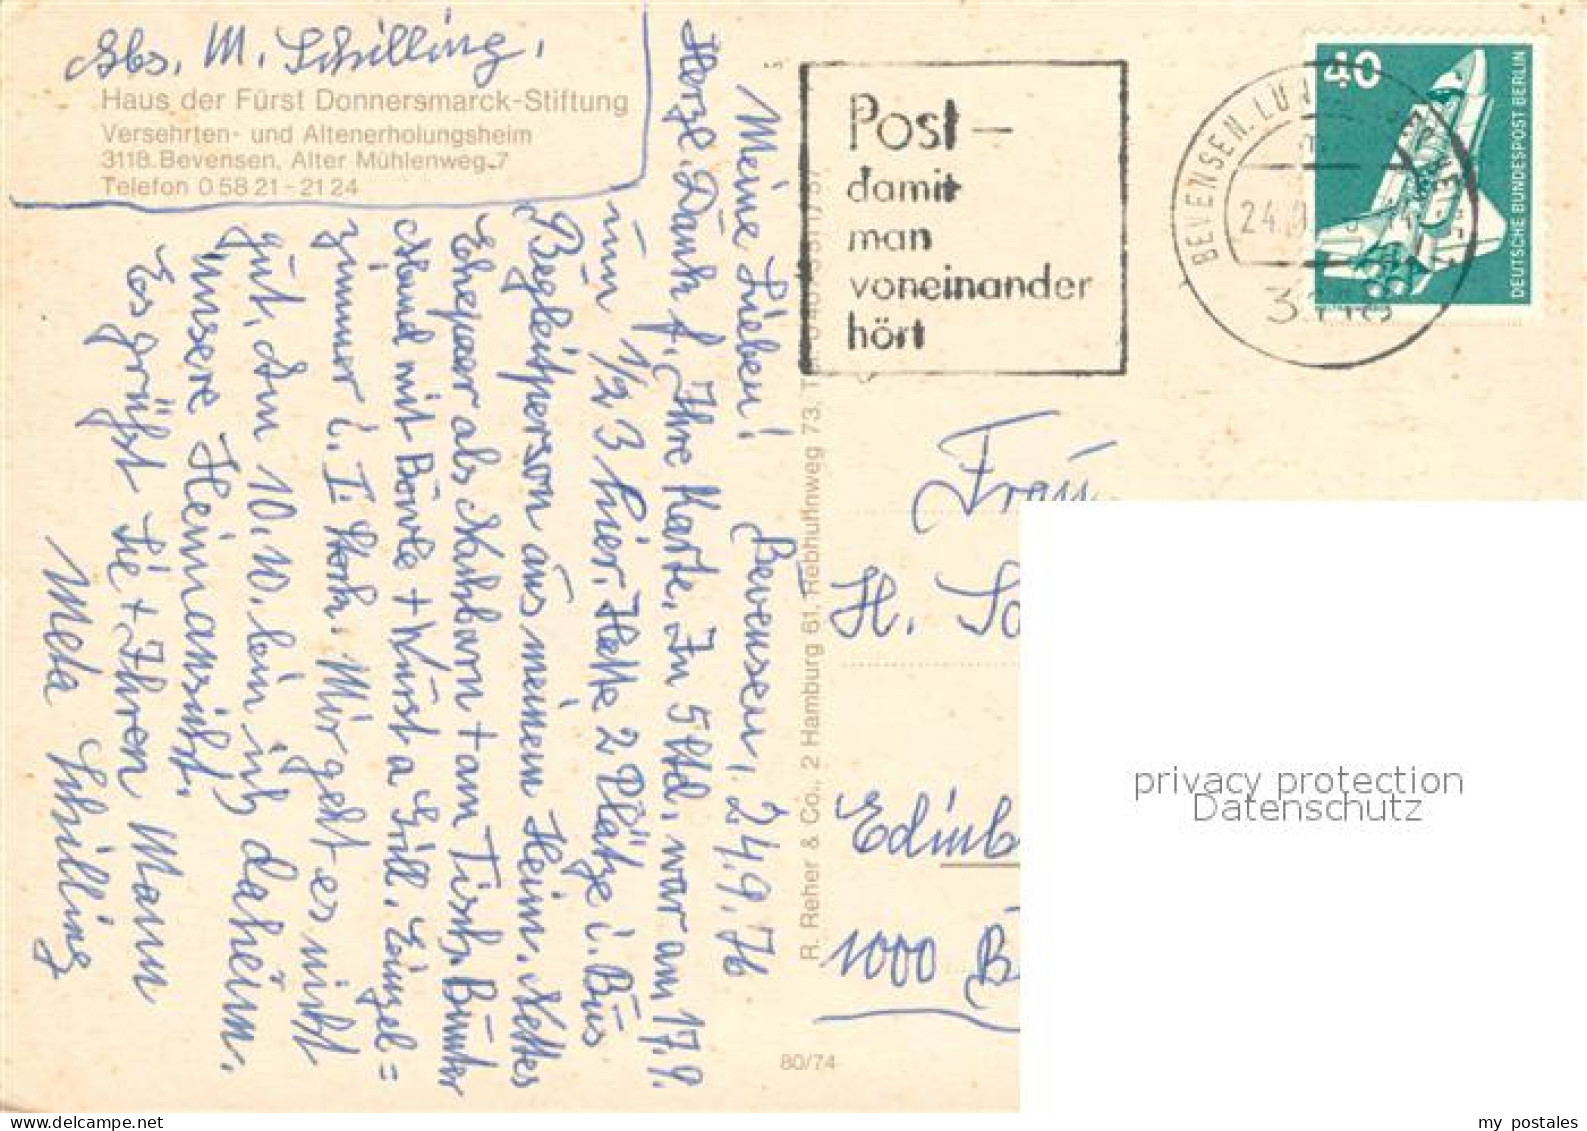 Abs. M. Schilling,
Haus der Fürst Donnersmarck-Stiftung
Versehrten- und Altenerholungsheim
3118 Bevensen, Alter Mühlenweg 7
Telefon 0 58 21 - 21 24
Bevensen, 24.9.76
Meine Lieben!
Herzl. Dank f. Ihre Karte. In 5 Std. war am 17.9.
um 1/2 3 hier. Hatte 2 Plätze i. Bus
Begleitperson aus meinem Heim. Nettes
Ehepaar als Nachbarn + am Tisch. Bunter
Abend mit Bowle + Wurst a Grill. Einzel=
zimmer i. I. Stock. Mir geht es nicht
gut. Am 10.10. bin ich daheim.
Unsere Heimansicht.
Es grüßt Sie + Ihren Mann
Meta Schilling
R. Reher & Co., 2 Hamburg 61, Rebhuhnweg 73,
80/74
Post –
damit
man
voneinander
hört
BEVENSEN
24.9
40
DEUTSCHE BUNDESPOST BERLIN
Frau
H. Sc
Edinb
1000 B
privacy protection
Datenschutz
my postales